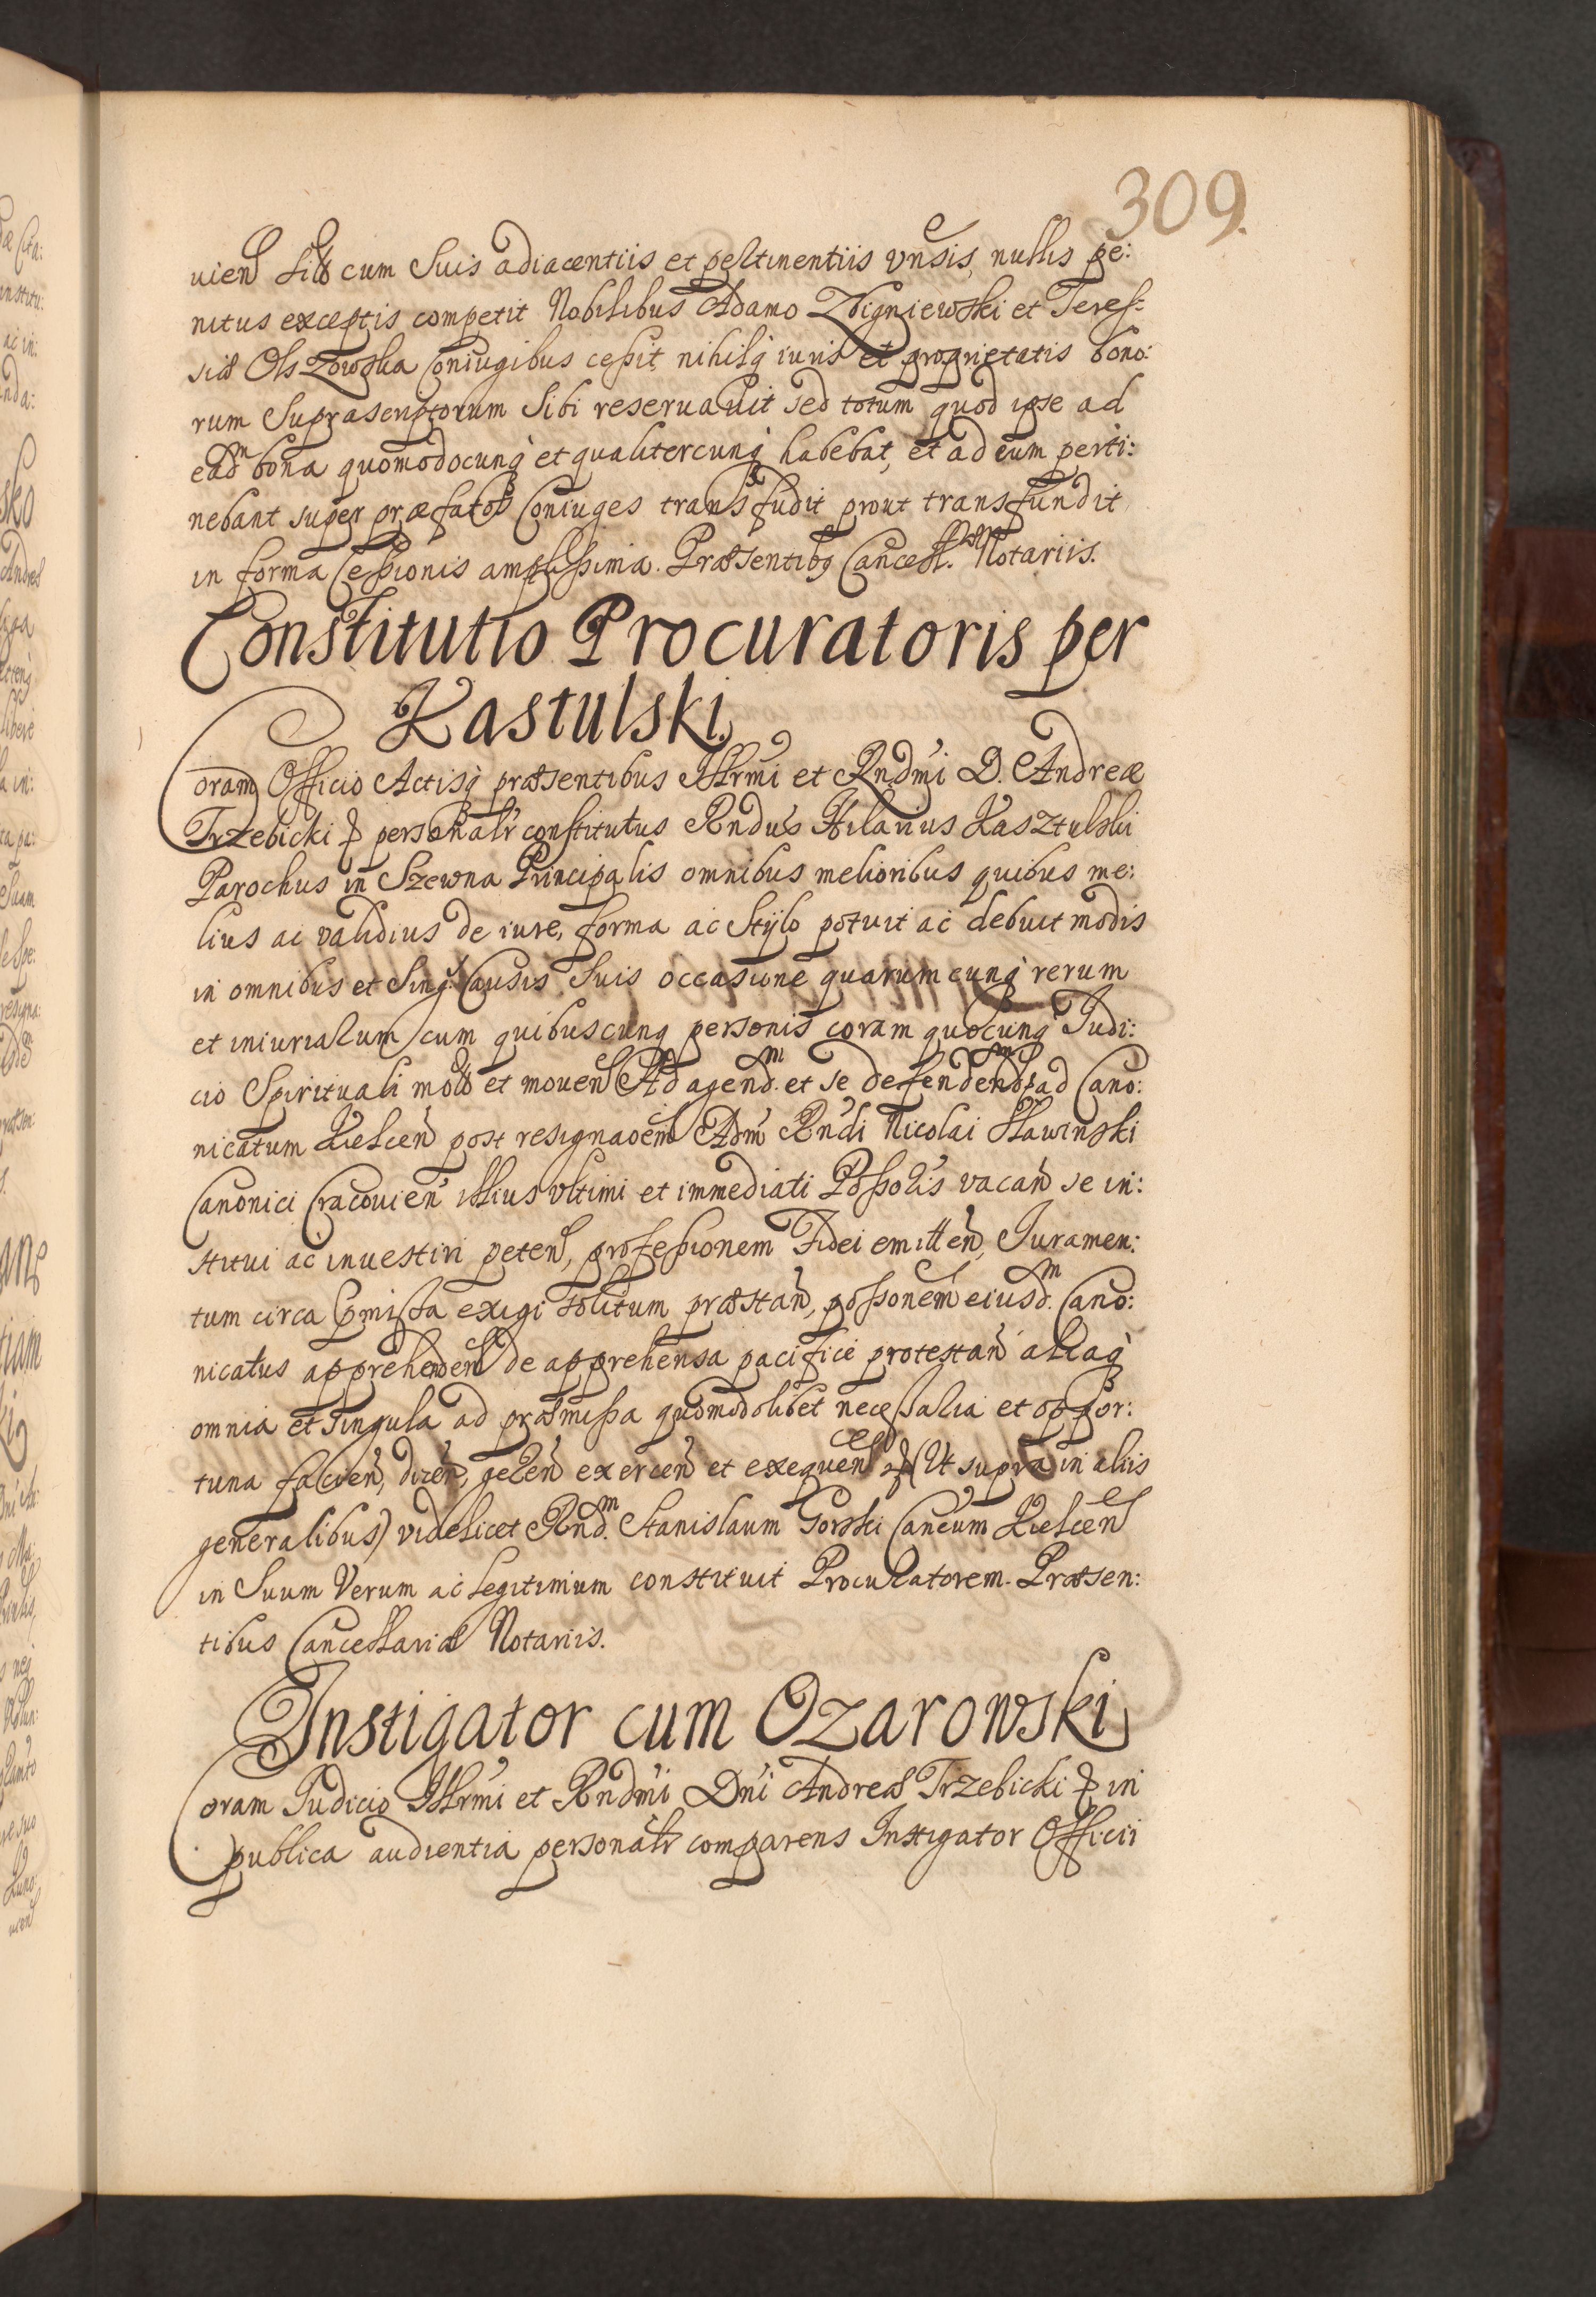 309.
uien sitis cum Suis adiacentiis et pertinentiis vnsis, nullis pe:
nitus exceptis competit Nobilibus Adamo Zbigniewski et Teres:
siæ Olszowska Coniugibus cessit nihilq iuris et proprietatis bono:
rum Suprascriptorum Sibi reseruauit sed totum quod ipse ad
eadm bona quomodocunq et qualitercunq habebat, et ad eum perti:
nebant super præfatos Coniuges transfudit prout transfundit
in forma Cessionis amplissima. Præsentibq Cancell. Notariis.
Constitutio Procuratoris per
Kastulski.
Coram Officio Actisq præsentibus Illrmi et Rndmi D. Andreæ
Trzebicki & personalr constitutus Rndus Hilarius Kasztulski
Parochus in Szewna Principalis omnibus melioribus quibus me:
lius ac validius de iure, forma ac Stylo potuit ac debuit modis
in omnibus et Sing. Causis Suis occasione quarumcunq rerum
et iniuriarum cum quibuscunq personis coram quocunq Iudi:
cio Spirituali motis et mouen Ad agend.m et se defendendm ad Cano:
nicatum Kielcen post resignaoem Adm Rndi Nicolai Sławinski
Canonici Cracouien illius vltimi et immediati Possoris vacan se in:
stitui ac inuestiri peten, professionem Fidei emitten, Iuramen:
tum circa Præmissa exigi solitum præstan, possonem eiusd.m Cano:
nicatus apprehenden de apprehensa pacifice protestan aliaq
omnia et singula ad præmissa quomodolibet necessaria et oppor:
tuna facien, dicen, geren exercen et exequen & (Ut supra in aliis
generalibus) videlicet Rnd.m Stanislaum Gorski Cancum Kielcen
in Suum Verum ac legitimum constituit Procuratorem. Præsen:
tibus Cancellariæ Notariis.
Instigator cum Ozarowski
Coram Iudicio Illrmi et Rndmi Dni Andreæ Trzebicki & in
publica audientia personalr comparens Instigator Officii